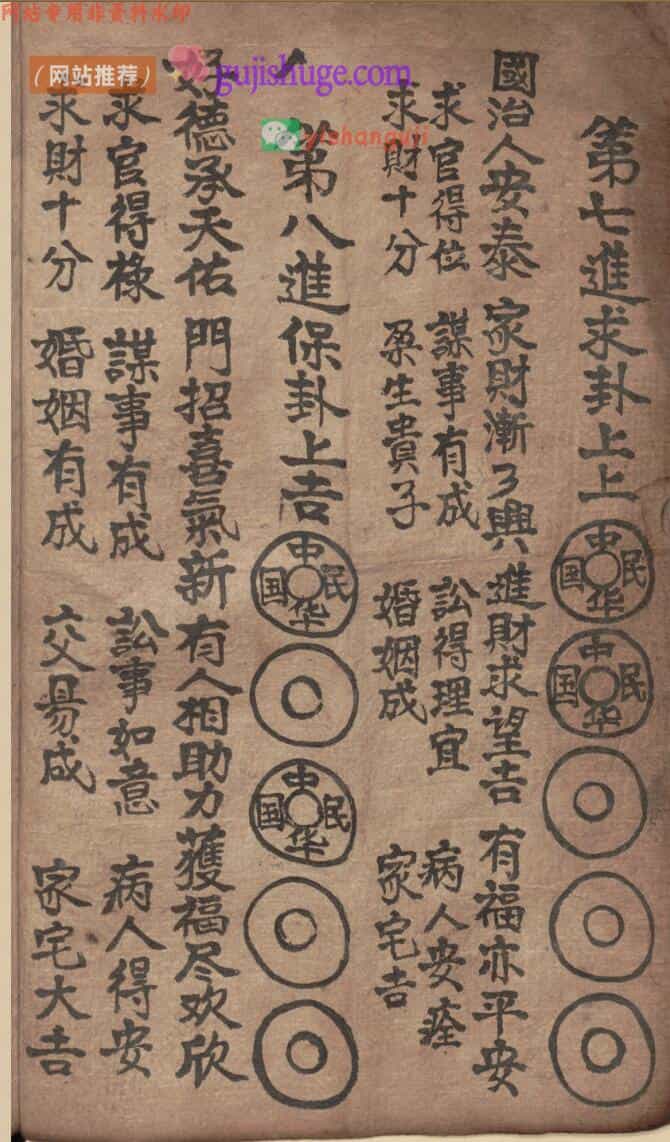 网站专用非资料水印
（网站推荐）
gujishuge.com
yishanguji
第七進求卦上上
中華民国
中華民国
國治人安泰 家財漸了興 進財求望吉 有福亦平安
求官得位 謀事有成 訟得理宜 病人安痊
求財十分 孕生貴子 婚姻成 家宅吉
第八進保卦上吉
中华民国
中华民国
好德承天佑 門招喜氣新 有人相助力 獲福尽欢欣
求官得祿 謀事有成 訟事如意 病人得安
求財十分 婚姻有成 交易成 家宅大吉